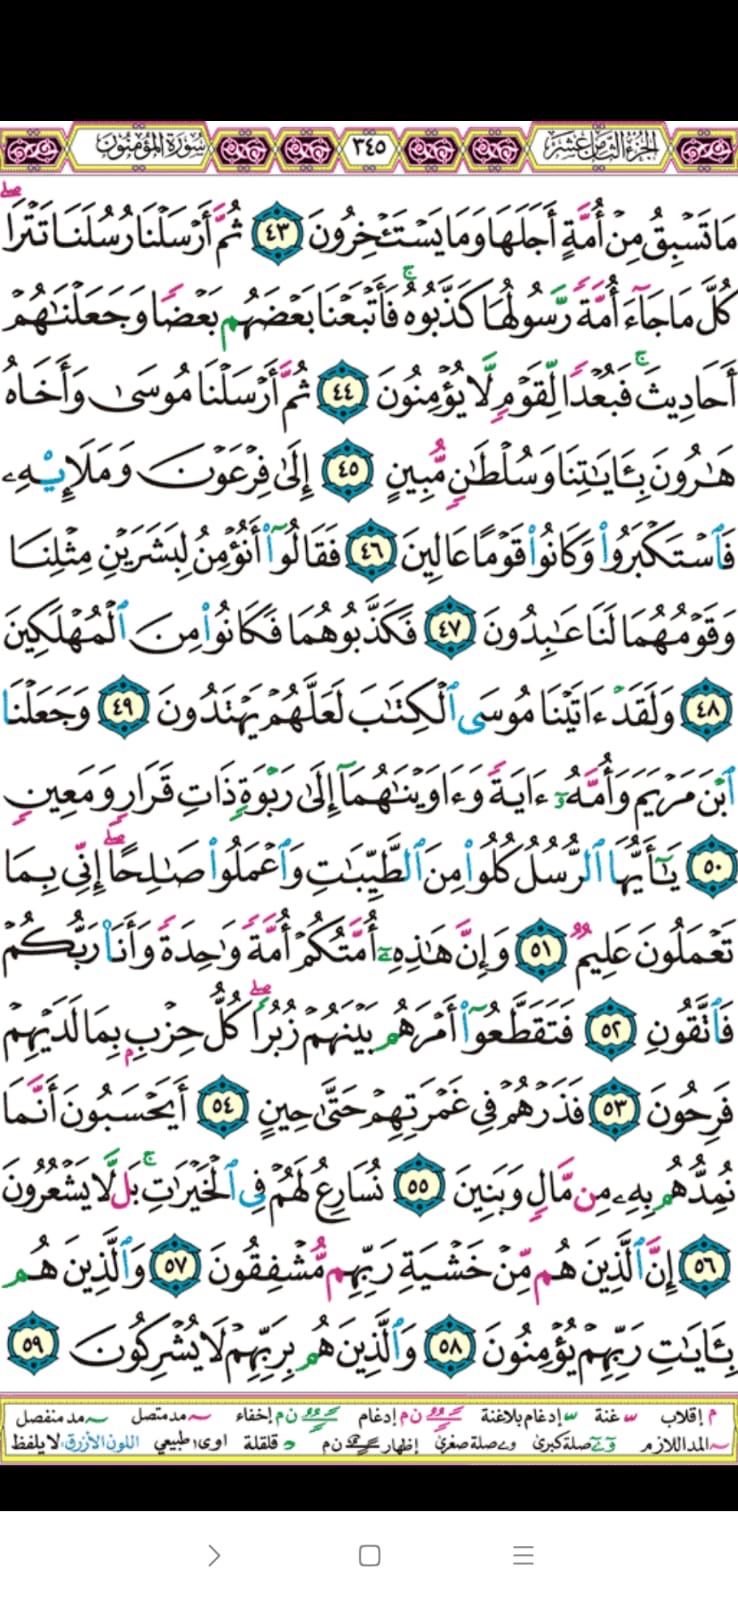 الجزء الثامن عشر ٣٤٥ سورة المؤمنون
مَا تَسْبِقُ مِنْ أُمَّةٍ أَجَلَهَا وَمَا يَسْتَـْٔخِرُونَ ٤٣ ثُمَّ أَرْسَلْنَا رُسُلَنَا تَتْرَا ۖ
كُلَّ مَا جَآءَ أُمَّةً رَّسُولُهَا كَذَّبُوهُ ۚ فَأَتْبَعْنَا بَعْضَهُم بَعْضًا وَجَعَلْنَٰهُمْ
أَحَادِيثَ ۚ فَبُعْدًا لِّقَوْمٍ لَّا يُؤْمِنُونَ ٤٤ ثُمَّ أَرْسَلْنَا مُوسَىٰ وَأَخَاهُ
هَٰرُونَ بِـَٔايَٰتِنَا وَسُلْطَٰنٍ مُّبِينٍ ٤٥ إِلَىٰ فِرْعَوْنَ وَمَلَإِي۟هِۦ
فَٱسْتَكْبَرُوا۟ وَكَانُوا۟ قَوْمًا عَالِينَ ٤٦ فَقَالُوٓا۟ أَنُؤْمِنُ لِبَشَرَيْنِ مِثْلِنَا
وَقَوْمُهُمَا لَنَا عَٰبِدُونَ ٤٧ فَكَذَّبُوهُمَا فَكَانُوا۟ مِنَ ٱلْمُهْلَكِينَ
٤٨ وَلَقَدْ ءَاتَيْنَا مُوسَى ٱلْكِتَٰبَ لَعَلَّهُمْ يَهْتَدُونَ ٤٩ وَجَعَلْنَا
ٱبْنَ مَرْيَمَ وَأُمَّهُۥٓ ءَايَةً وَءَاوَيْنَٰهُمَآ إِلَىٰ رَبْوَةٍ ذَاتِ قَرَارٍ وَمَعِينٍ
٥٠ يَٰٓأَيُّهَا ٱلرُّسُلُ كُلُوا۟ مِنَ ٱلطَّيِّبَٰتِ وَٱعْمَلُوا۟ صَٰلِحًا ۖ إِنِّى بِمَا
تَعْمَلُونَ عَلِيمٌ ٥١ وَإِنَّ هَٰذِهِۦٓ أُمَّتُكُمْ أُمَّةً وَٰحِدَةً وَأَنَا۠ رَبُّكُمْ
فَٱتَّقُونِ ٥٢ فَتَقَطَّعُوٓا۟ أَمْرَهُم بَيْنَهُمْ زُبُرًا ۖ كُلُّ حِزْبٍۭ بِمَا لَدَيْهِمْ
فَرِحُونَ ٥٣ فَذَرْهُمْ فِى غَمْرَتِهِمْ حَتَّىٰ حِينٍ ٥٤ أَيَحْسَبُونَ أَنَّمَا
نُمِدُّهُم بِهِۦ مِن مَّالٍ وَبَنِينَ ٥٥ نُسَارِعُ لَهُمْ فِى ٱلْخَيْرَٰتِ ۚ بَل لَّا يَشْعُرُونَ
٥٦ إِنَّ ٱلَّذِينَ هُم مِّنْ خَشْيَةِ رَبِّهِم مُّشْفِقُونَ ٥٧ وَٱلَّذِينَ هُم
بِـَٔايَٰتِ رَبِّهِمْ يُؤْمِنُونَ ٥٨ وَٱلَّذِينَ هُم بِرَبِّهِمْ لَا يُشْرِكُونَ ٥٩
م إقلاب غنة إدغام بلاغنة ن م إدغام ن م إخفاء مد متصل مد منفصل
المد اللازم صلة كبرى صلة صغرى إظهار ن م قلقلة اوى طبيعي اللون الأزرق لا يلفظ